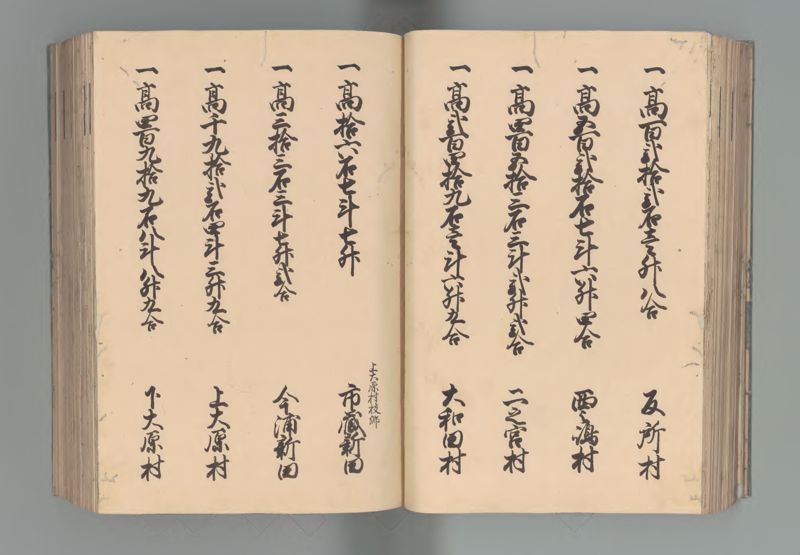 一高百弐拾弐石壱升八合 反所村
一高五百弐拾石七斗六升四合 西之嶋村
一高四百五拾三石三斗弐升弐合 二之宮村
一高弐百四拾九石壱斗六升九合 大和田村
上大原村枝郷
一高拾六石七斗七升 市蔵新田
一高三拾三石三斗七升弐合 今浦新田
一高千九拾弐石四斗三升九合 上大原村
一高四百九拾九石八斗八升九合 下大原村